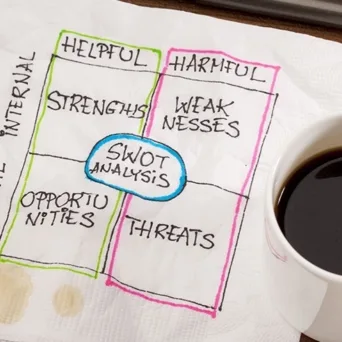 HELPFUL
HARMFUL
INTERNAL
STRENGTHS
WEAK
NESSES
SWOT
ANALYSIS
OPPORTU
NITIES
THREATS